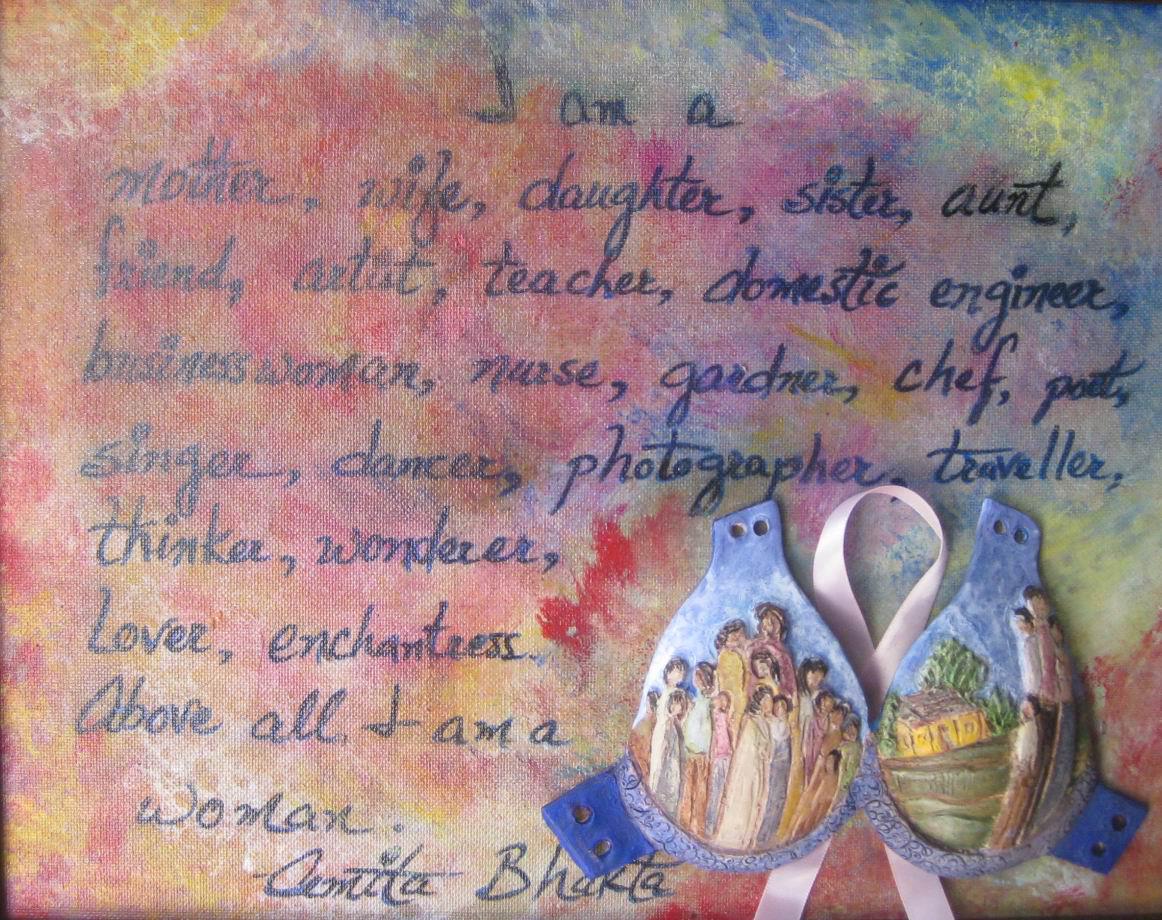 I am a
mother, wife, daughter, sister, aunt,
friend, artist, teacher, domestic engineer,
business woman, nurse, gardner, chef, poet,
singer, dancer, photographer, traveller,
thinker, wonderer,
Lover, enchantress.
Above all I am a
woman.
-Amita Bhakta